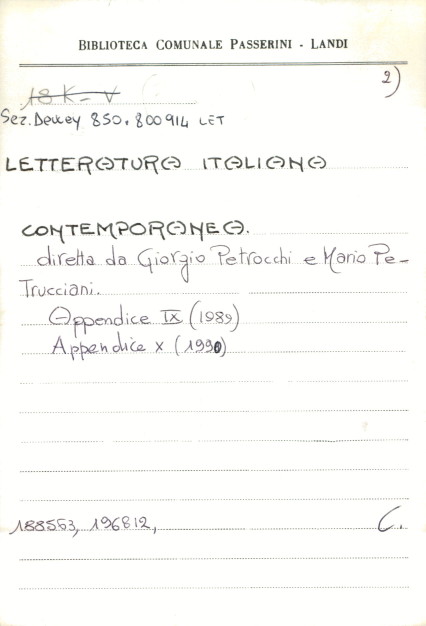 BIBLIOTECA COMUNALE PASSERINI - LANDI
2)
18 K - V
Sez. Dewey 850.800914 LET
LETTERATURA ITALIANA
CONTEMPORANEA.
diretta da Giorgio Petrocchi e Mario Pe-
Trucciani.
Appendice IX (1989)
Appendice X (1990)
188563, 196812,
C.